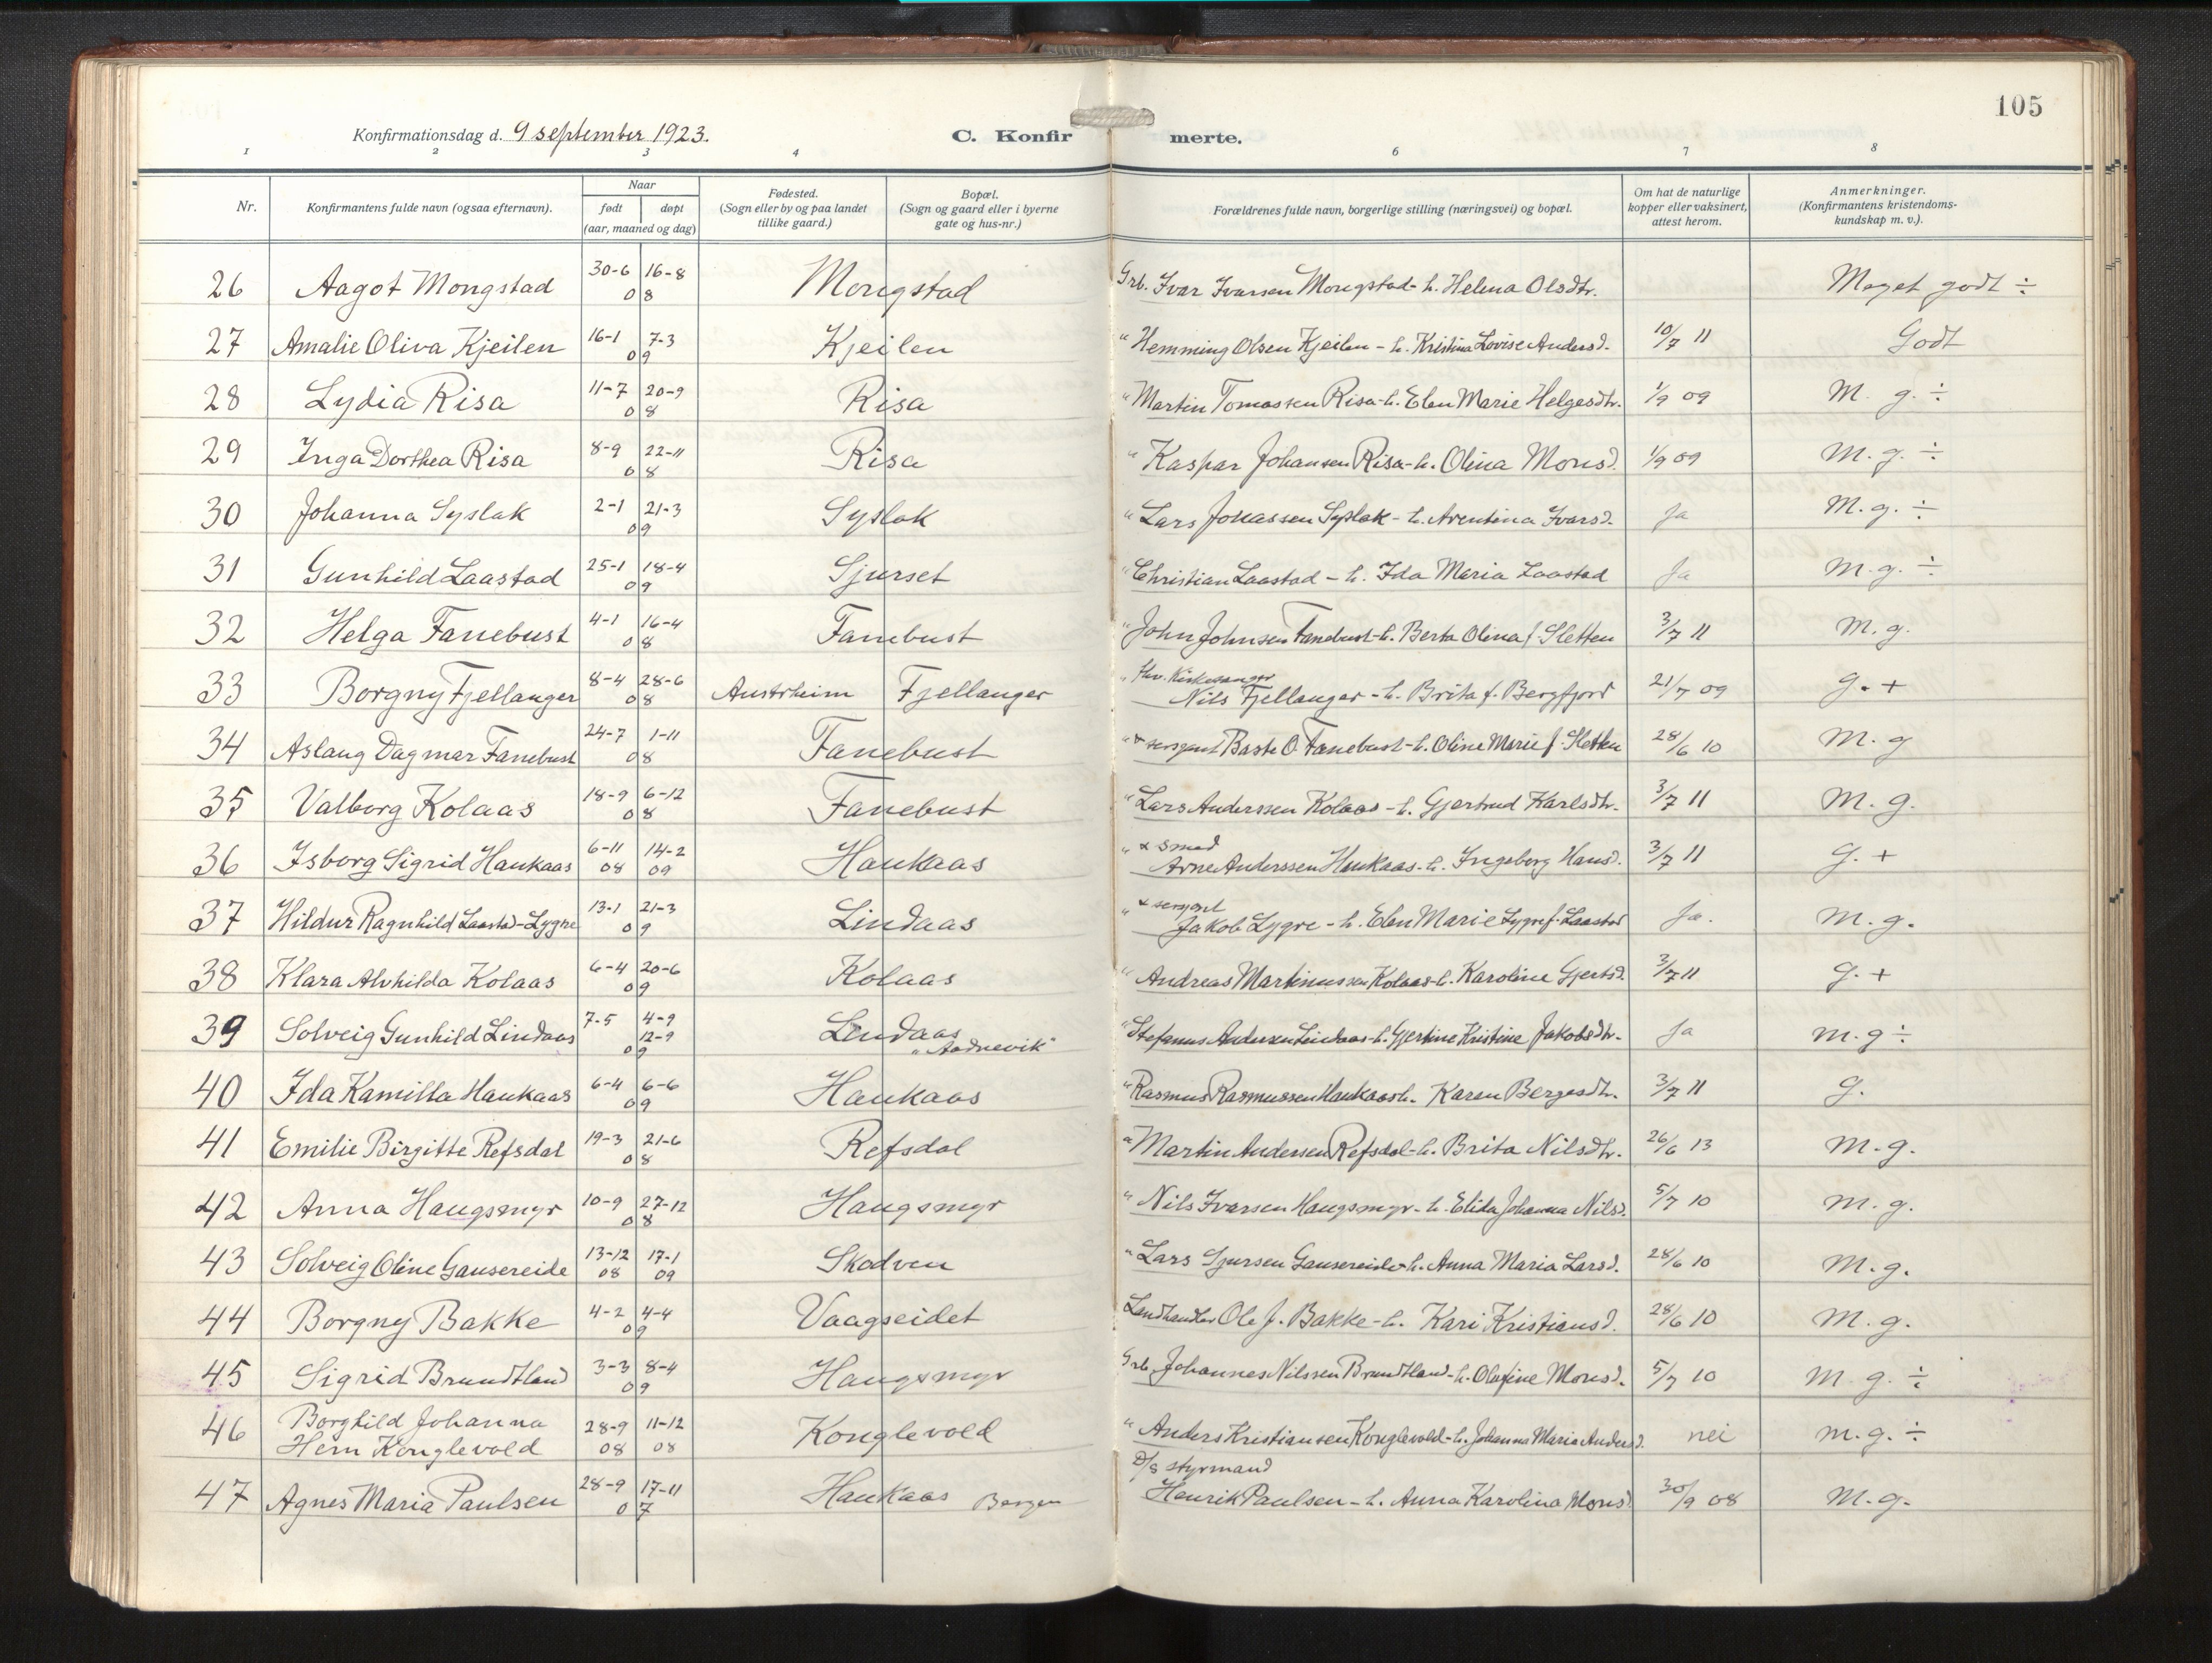 105
Konfirmationsdag d. 9 september 1923. C. Konfirmerte.
1 2 3 4 6 7 8
Nr. Konfirmantens fulde navn (ogsaa efternavn). Naar født døpt (aar, maaned og dag) Fødested. (Sogn eller by og paa landet tillike gaard.) Bopæl. (Sogn og gaard eller i byerne gate og hus-nr.) Forældrenes fulde navn, borgerlige stilling (næringsvei) og bopæl. Om hat de naturlige kopper eller vaksinert, attest herom. Anmerkninger. (Konfirmantens kristendomskundskap m. v.).
26 Aagot Mongstad 30-6 16-8 08 Mongstad Grb. Ivar Ivarsen Mongstad - h. Helena Olsdtr. Meget godt ÷
27 Amalie Oliva Kjeilen 16-1 7-3 09 Kjeilen " Hemming Olsen Kjeilen - h. Kristina Lovise Andersd. 10/7 11 Godt
28 Lydia Risa 11-7 20-9 08 Risa " Martin Tomassen Risa - h. Elen Marie Helgesdtr. 1/9 09 M. g. ÷
29 Inga Dorthea Risa 8-9 22-11 08 Risa " Kaspar Johansen Risa - h. Olina Monsd. 1/9 09 M. g. ÷
30 Johanna Syslak 2-1 21-3 09 Syslak " Lars Jonassen Syslak - h. Arentina Ivarsd. Ja M. g. ÷
31 Gunhild Laastad 25-1 18-4 09 Sjurset " Christian Laastad - h. Ida Maria Laastad Ja M. g. ÷
32 Helga Fanebust 4-1 16-4 08 Fanebust " John Johnsen Fanebust - h. Berta Olina f. Sletten 3/7 11 M. g.
33 Borgny Fjellanger 8-4 28-6 08 Austrheim Fjellanger " Kirkesanger Nils Fjellanger - h. Brita f. Bergfjord 21/7 09 g. +
34 Aslaug Dagmar Fanebust 24-7 1-11 08 Fanebust " & sersjant Baste O. Fanebust - h. Oline Marie f. Sletten 28/6 10 M. g
35 Valborg Kolaas 18-9 6-12 08 Fanebust " Lars Anderssen Kolaas - h. Gjertrud Karlsdtr. 3/7 11 M. g.
36 Isborg Sigrid Haukaas 6-11 08 14-2 09 Haukaas " & smed Arne Anderssen Haukaas - h. Ingeborg Hansd. 3/7 11 G. +
37 Hildur Ragnhild Laastad-Lygre 13-1 21-3 09 Lindaas " & sersjant Jakob Lygre - h. Elen Marie Lygre f. Laastad Ja. M. g.
38 Klara Alvhilda Kolaas 6-4 20-6 09 Kolaas " Andreas Martinussen Kolaas - h. Karoline Gjertsd. 3/7 11 g. +
39 Solveig Gunhild Lindaas 7-5 4-9 12-9 09 Lindaas "Aadnevik" " Stefanus Andersen Lindaas - h. Gjertine Kristine Jakobsdtr. Ja M. g ÷
40 Ida Kamilla Haukaas 6-4 6-6 09 Haukaas " Rasmus Rasmussen Haukaas - h. Karen Bergesdtr. 3/7 11 G.
41 Emilie Birgitte Refsdal 19-3 21-6 08 Refsdal " Martin Andersen Refsdal - h. Brita Nilsdtr. 26/6 13 M. g.
42 Anna Haugsmyr 10-9 27-12 08 Haugsmyr " Nils Ivarsen Haugsmyr - h. Elida Johanna Nilsd. 5/7 10 M. g.
43 Solveig Oline Gausereide 13-12 08 17-1 09 Skodven " Lars Sjursen Gausereide - h. Anna Maria Larsd. 28/6 10 M. g.
44 Borgny Bakke 4-2 4-4 09 Vaagseidet Landhandler Ole J. Bakke - h. Kari Kristiansd. 28/6 10 M. g.
45 Sigrid Brundtland 3-3 8-4 09 Haugsmyr Grb. Johannes Nilssen Brundtland - h. Olufine Monsd. 5/7 10 M. g. ÷
46 Borghild Johanna Hem Konglevold 28-9 08 11-12 08 Konglevold " Anders Kristiansen Konglevold - h. Johanna Maria Andersd. nei M. g. ÷
47 Agnes Maria Paulsen 28-9 17-11 07 Haukaas Bergen D/s styrmand Henrik Paulsen - h. Anna Karolina Monsd. 30/9 08 M. g.